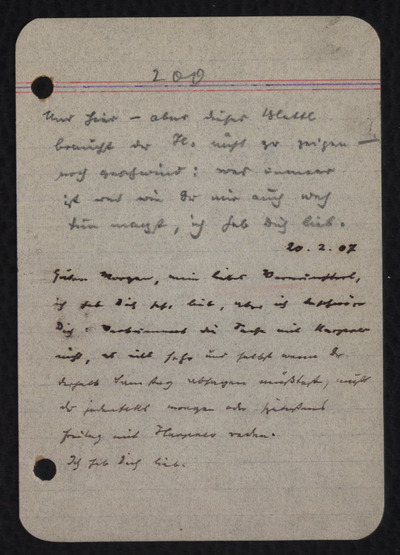 200
Und hier – aber dieses Blattl
brauchst der H. nicht zu zeigen –
noch geschwind: was immer
ist und wie Du mir auch weh
tun magst, ich hab Dich lieb.
20. 2. 07
Guten Morgen, mein liebes
ich hab Dich sehr lieb, aber ich beschwöre
Dich: die Sache mit
nicht, es und selbst wenn Du
deshalb Samstag absagen müßtest, mußt
Du jedenfalls morgen oder spätestens
Freitag mit reden.
Ich hab Dich lieb.